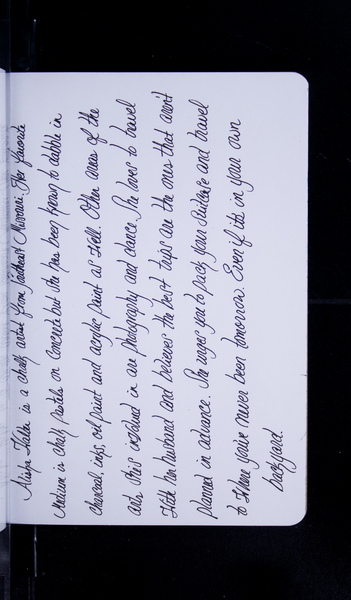 is a chalk artist from Southeast Missouri. Her favorite
medium is chalk pastels on concrete but she has been known to dabble in
charcoal, inks, oil paint and acrylic paint as well. Other areas of the
arts she's involved in are photography and dance. She loves to travel
with her husband and believes the best trips are the ones that aren't
planned in advance. She urges you to pack your suitcase and travel
to where you've never been tomorrow. Even if it's in your own
backyard.